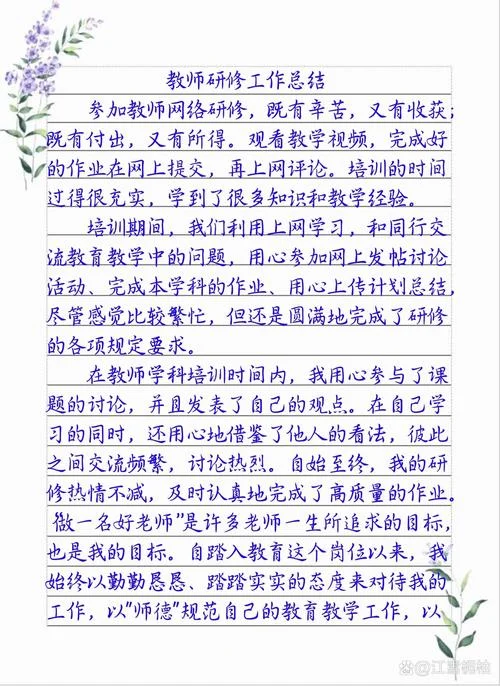 教师研修工作总结
参加教师网络研修，既有辛苦，又有收获；
既有付出，又有所得。观看教学视频，完成好
的作业在网上提交，再上网评论。培训的时间
过得很充实，学到了很多知识和教学经验。
培训期间，我们利用上网学习，和同行交
流教育教学中的问题，用心参加网上发帖讨论
活动、完成本学科的作业、用心上传计划总结，
尽管感觉比较繁忙，但还是圆满地完成了研修
的各项规定要求。
在教师学科培训时间内，我用心参与了课
题的讨论，并且发表了自己的观点。在自己学
习的同时，还用心地借鉴了他人的看法，彼此
之间交流频繁，讨论热烈。自始至终，我的研
修热情不减，及时认真地完成了高质量的作业。
“做一名好老师”是许多老师一生所追求的目标，
也是我的目标。自踏入教育这个岗位以来，我
始终以勤勤恳恳、踏踏实实的态度来对待我的
工作，以"师德"规范自己的教育教学工作，以